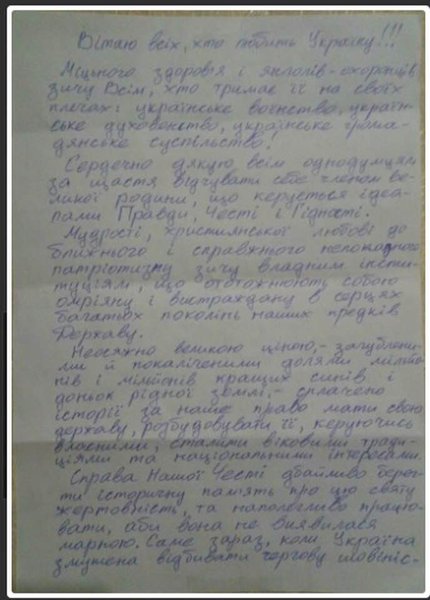 Вітаю всіх, хто любить Україну!!!
Міцного здоров'я і янголів-охоронців
зичу Всім, хто тримає її на своїх
плечах: українське воїнство, україн-
ське духовенство, українське грома-
дянське суспільство!
Сердечно дякую всім однодумцям
за щастя відчувати себе членом ве-
ликої родини, що керується ідеа-
лами Правди, Честі і Гідності.
Мудрості, християнської любові до
ближнього і справжнього непоказного
патріотизму зичу владним інсти-
туціям, що ототожнюють собою
омріяну і вистраждану в серцях
багатьох поколінь наших предків
Державу.
Неосяжно великою ціною, - загублени-
ми й покаліченими долями мільйо-
нів і мільйонів кращих синів і
доньок рідної землі, - сплачено
історії за наше право мати свою
державу, розбудовувати її, керуючись
власними, сталими віковими тради-
ціями та національними інтересами.
Справа Нашої Честі дбайливо берег-
ти історичну память про цю святу
жертовність, та наполегливо працю-
вати, аби вона не виявилася
марною. Саме зараз, коли Україна
змушена відбивати чергову шовініс-